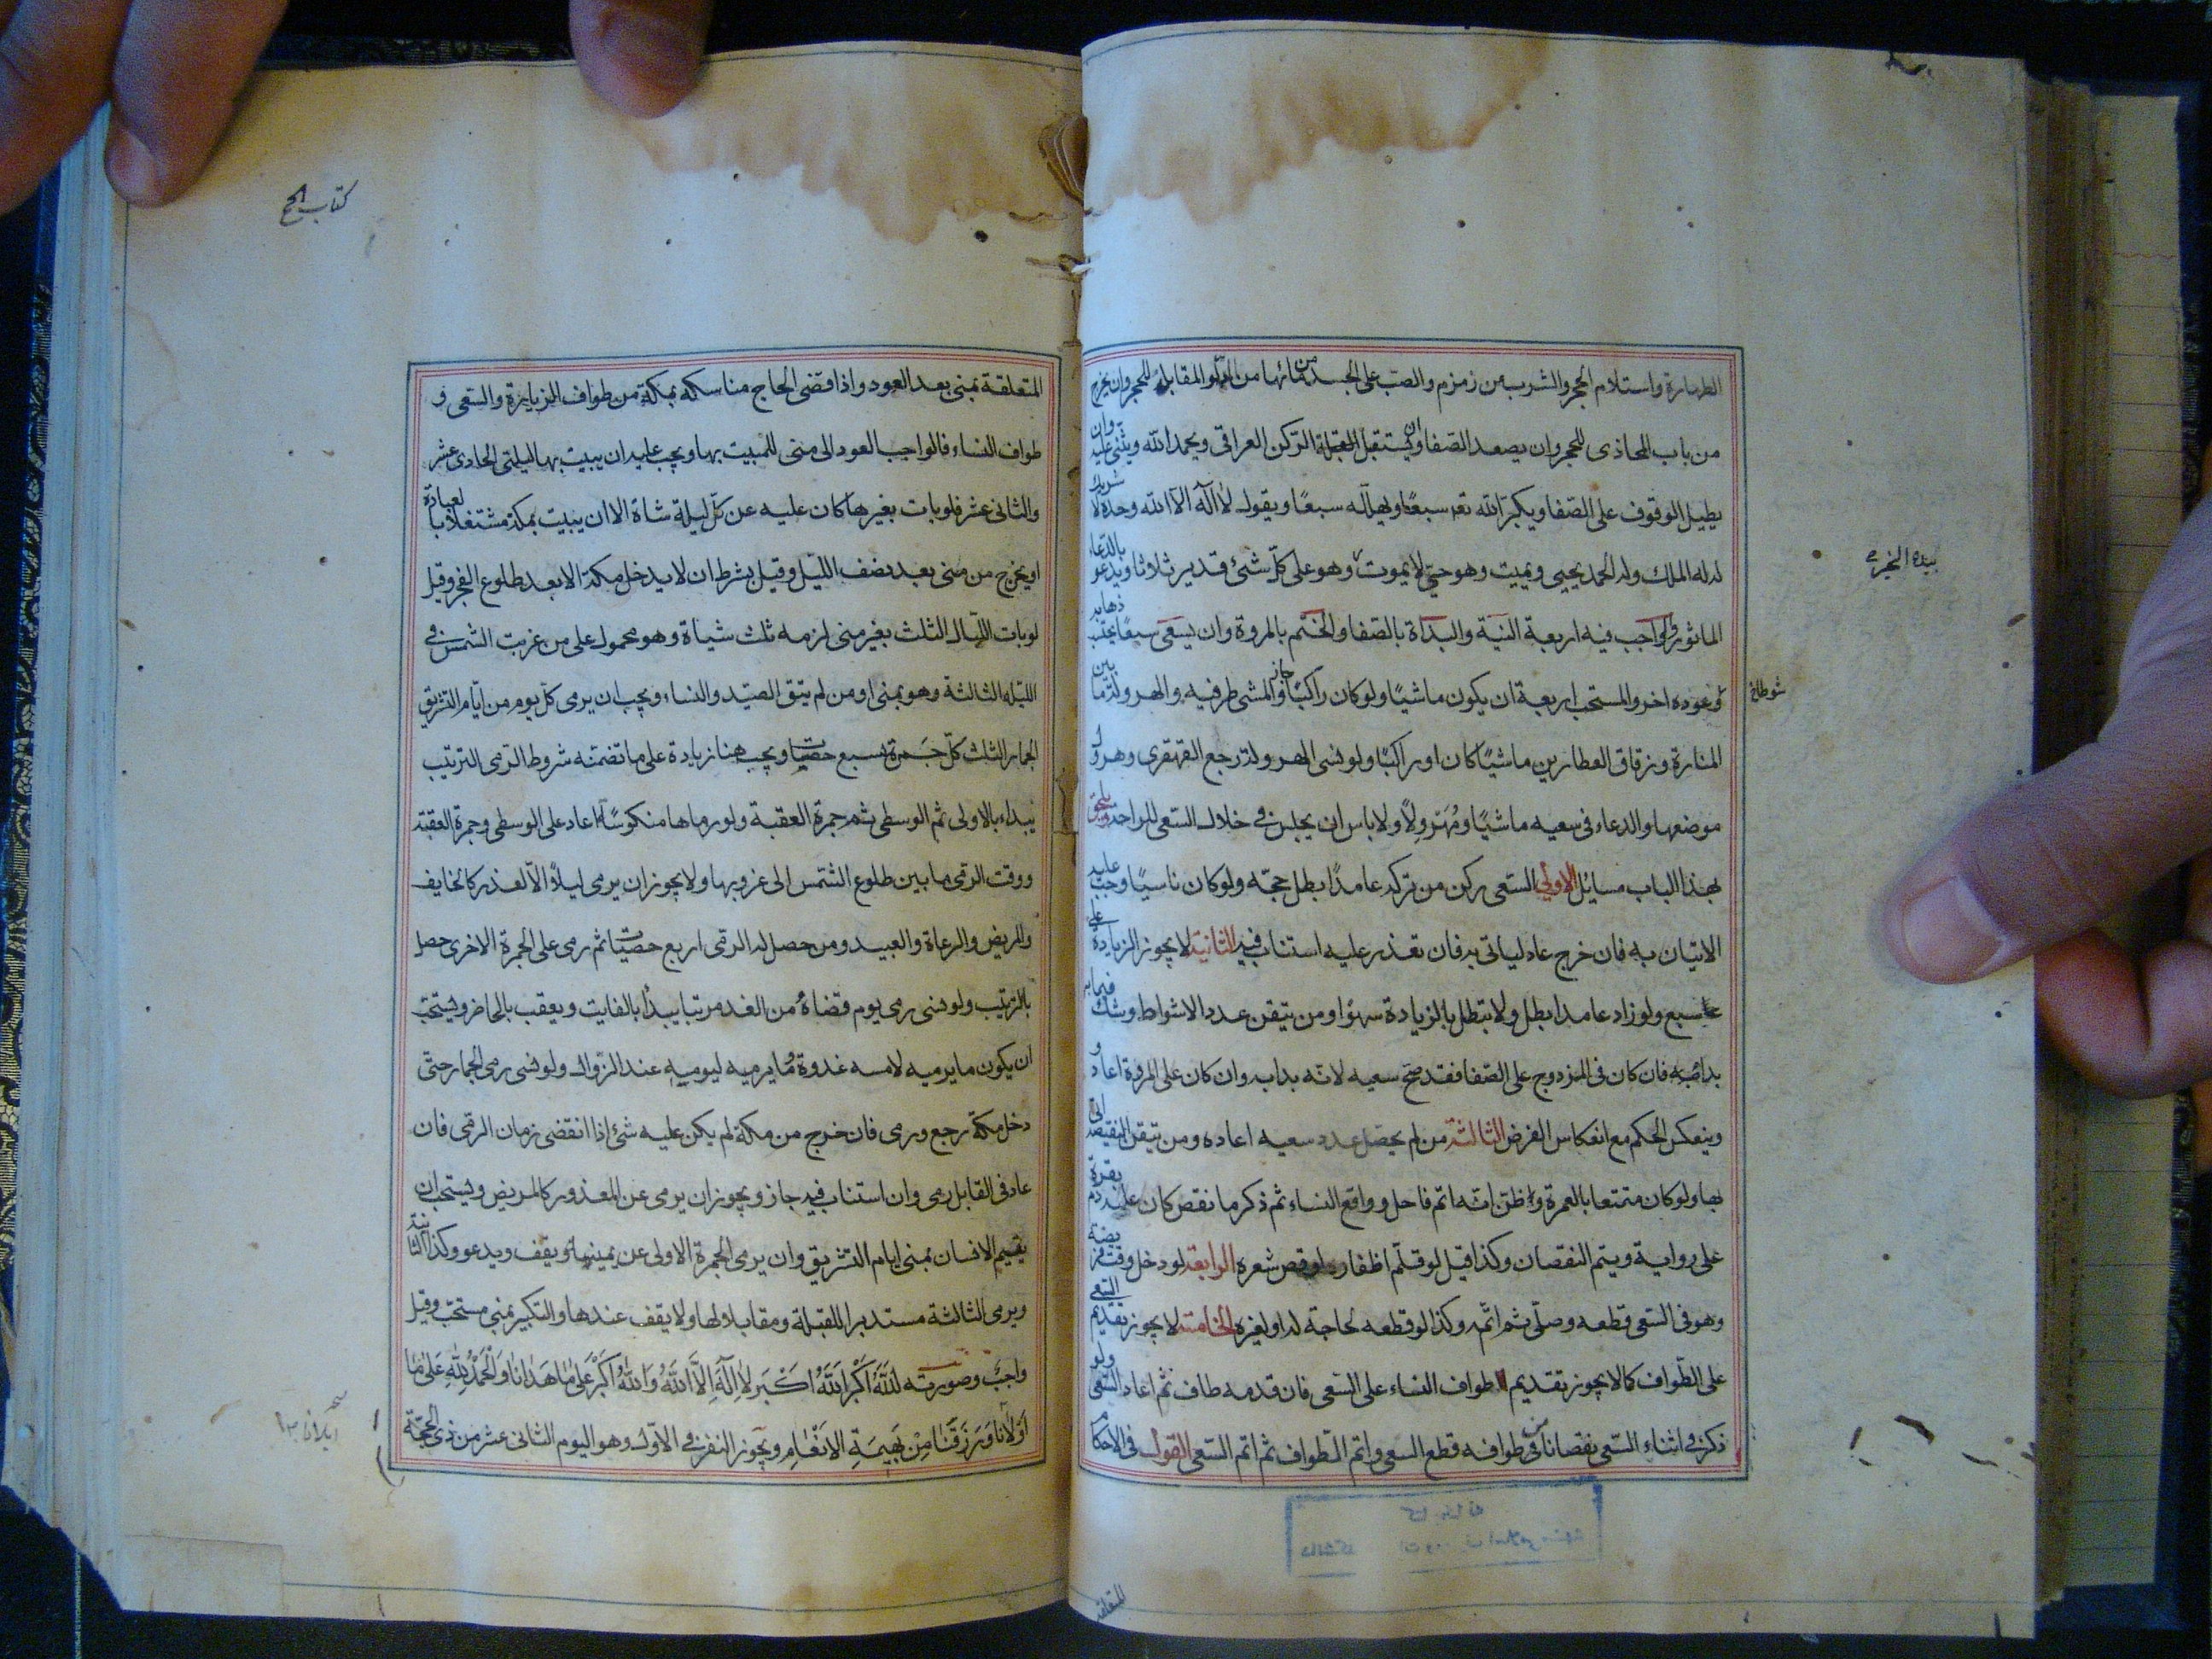 الطهارة واستلام الحجر والشرب من زمزم والصب على الجسد من مائها من الدلو المقابل للحجر وان يخرج
من باب المحاذى للحجر وان يصعد الصفا وان يستقبل الركن العراقى ويحمد الله ويثنى عليه وان
يطيل الوقوف على الصفا ويكبر الله تعه سبعًا ويهلله سبعًا ويقول لا اله الا الله وحده لا شريك
له له الملك وله الحمد يحيى ويميت وهو حى لا يموت وهو على كل شئ قدير ثلاثا ويدعو بالدعاء
الماثور والواجب فيه اربعة النية والبداة بالصفا والختم بالمروة وان يسعى سبعًا يحتسب ذهابه
وعوده اخر والمستحب اربعة ان يكون ماشيًا ولو كان راكبًا جاز والمشى طرفيه والهرولة ما بين
المنارة وزقاق العطارين ماشيًا كان او راكبًا ولو نسى الهرولة رجع القهقرى وهرول
موضعها والدعاء فى سعيه ماشيًا ومُهَرولًا ولا باس ان يجلس فى خلال السعى للراحة ويلحق
بهذا الباب مسايل الاولى السعى ركن من تركه عامدًا بطل حجه ولو كان ناسيًا وجب عليه
الاتيان به فان خرج عاد لياتى به فان تعذر عليه استناب فيه الثانية لا يجوز الزيادة على
سبع ولو زاد عامدا بطل ولا تبطل بالزيادة سهوًا ومن تيقن عدد الاشواط وشك فيما به
بدا فان كان فى المزدوج على الصفا فقد صح سعيه لانه بدا به وان كان على المروة اعاد و
وينعكس الحكم مع انعكاس الفرض الثالثة من لم يحصل عدد سعيه اعاده ومن تيقن النقيصة اتى
بها ولو كان متمتعا بالعمرة وظن انه اتم فاحل وواقع النساء ثم ذكر ما نقص كان عليه دم بقرة
على رواية ويتم النقصان وكذا قيل لو قلم اظفاره او قص شعره الرابعة لو دخل وقت فريضة
وهو فى السعى قطعه وصلى ثم اتمه وكذا لو قطعه لحاجة له او لغيره الخامسة لا يجوز تقديم السعى
على الطواف كما لا يجوز تقديم طواف النساء على السعى فان قدمه طاف ثم اعاد السعى ولو
ذكر فى اثناء السعى نقصانا من طوافه قطع السعى واتم الطواف ثم اتم السعى القول فى الاحكام
شوطا خ
المتعلقة
كتاب الحج
المتعلقة بمنى بعد العود واذا قضى الحاج مناسكه بمكة من طواف الزيارة والسعى و
طواف النساء فالواجب العود الى منى للمبيت بها ويجب عليه ان يبيت بها ليلتى الحادى عشر
والثانى عشر فلو بات بغيرها كان عليه عن كل ليلة شاة الا ان يبيت بمكة مشتغلا بالعبادة
او يخرج من منى بعد نصف الليل وقيل بشرط ان لا يدخل مكة الا بعد طلوع الفجر وقيل
لو بات الليال الثلث بغير منى لزمه ثلث شياة وهو محمول على من غربت الشمس فى
الليله الثالثة وهو بمنى او من لم يتق الصيد والنساء ويجب ان يرمى كل يوم من ايام التشريق
الجمار الثلث كل جَمرة بسبع حصيات ويجب هنا زيادة على ما تضمنه شروط الرمى الترتيب
يبداء بالاولى ثم الوسطى ثم جمرة العقبة ولو رماها منكوسًا اعاد على الوسطى وجمرة العقبة
ووقت الرمى ما بين طلوع الشمس الى غروبها ولا يجوز ان يرمى ليلاً الا لعذر كالخايف
والمريض والرعاة والعبيد ومن حصل له الرمى اربع حصيات ثم رمى على الجمرة الاخرى حصل
بالترتيب ولو نسى رمى يوم قضاهُ من الغد مرتبا يبدأ بالفايت ويعقب بالحاضر ويستحب
ان يكون ما يرميه لامسه غدوة وما يرميه ليوميه عند الزوال ولو نسى رمى الجمار حتى
دخل مكة رجع ورمى فان خرج من مكة لم يكن عليه شئ اذا انقضى زمان الرمى فان
عاد فى القابل رمى وان استناب فيه جاز ويجوز ان يرمى عن المعذور كالمريض ويستحب ان
يقيم الانسان بمنى ايام التشريق وان يرمى الجمرة الاولى عن يمينه ويقف ويدعو وكذا الثانية
ويرمى الثالثة مستدبرا للقبلة ومقابلا لها ولا يقف عندها والتكبير بمنى مستحب وقيل
واجب وصورته اَللهُ اَكْبَر اَللهُ اَكْبَر لا اِلٰهَ اِلَّا اللهُ وَاللهُ اَكْبَرُ عَلى مٰا هَدٰانٰا وَالْحَمْدُ لِلّٰهِ عَلىٰ مٰا
اَوْلٰانٰا وَرَزَقَنٰا مِنْ بَهِيمَةِ الاَنْعٰامِ ويجوز النفر فى الاول وهو اليوم الثانى عشر من ذى الحجة